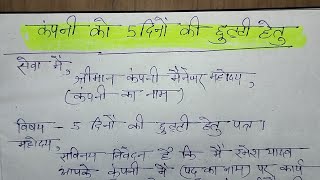 कंपनी को 5 दिनों की छुट्टी हेतु
सेवा में,
श्रीमान कंपनी मैनेजर महोदय,
(कंपनी का नाम)
विषय - 5 दिनों की छुट्टी हेतु पत्र।
महोदय,
सविनय निवेदन है कि मैं रमेश यादव
आपके कंपनी में (पद का नाम) पर कार्य